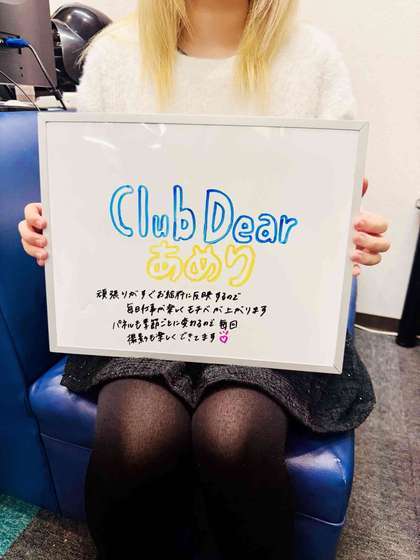 Club Dear
あめり
頑張りがすぐお給料に反映するので
毎日仕事が楽しくモチベが上がります
パネルも季節ごとに変わるので 毎回
撮影も楽しくできてます♡